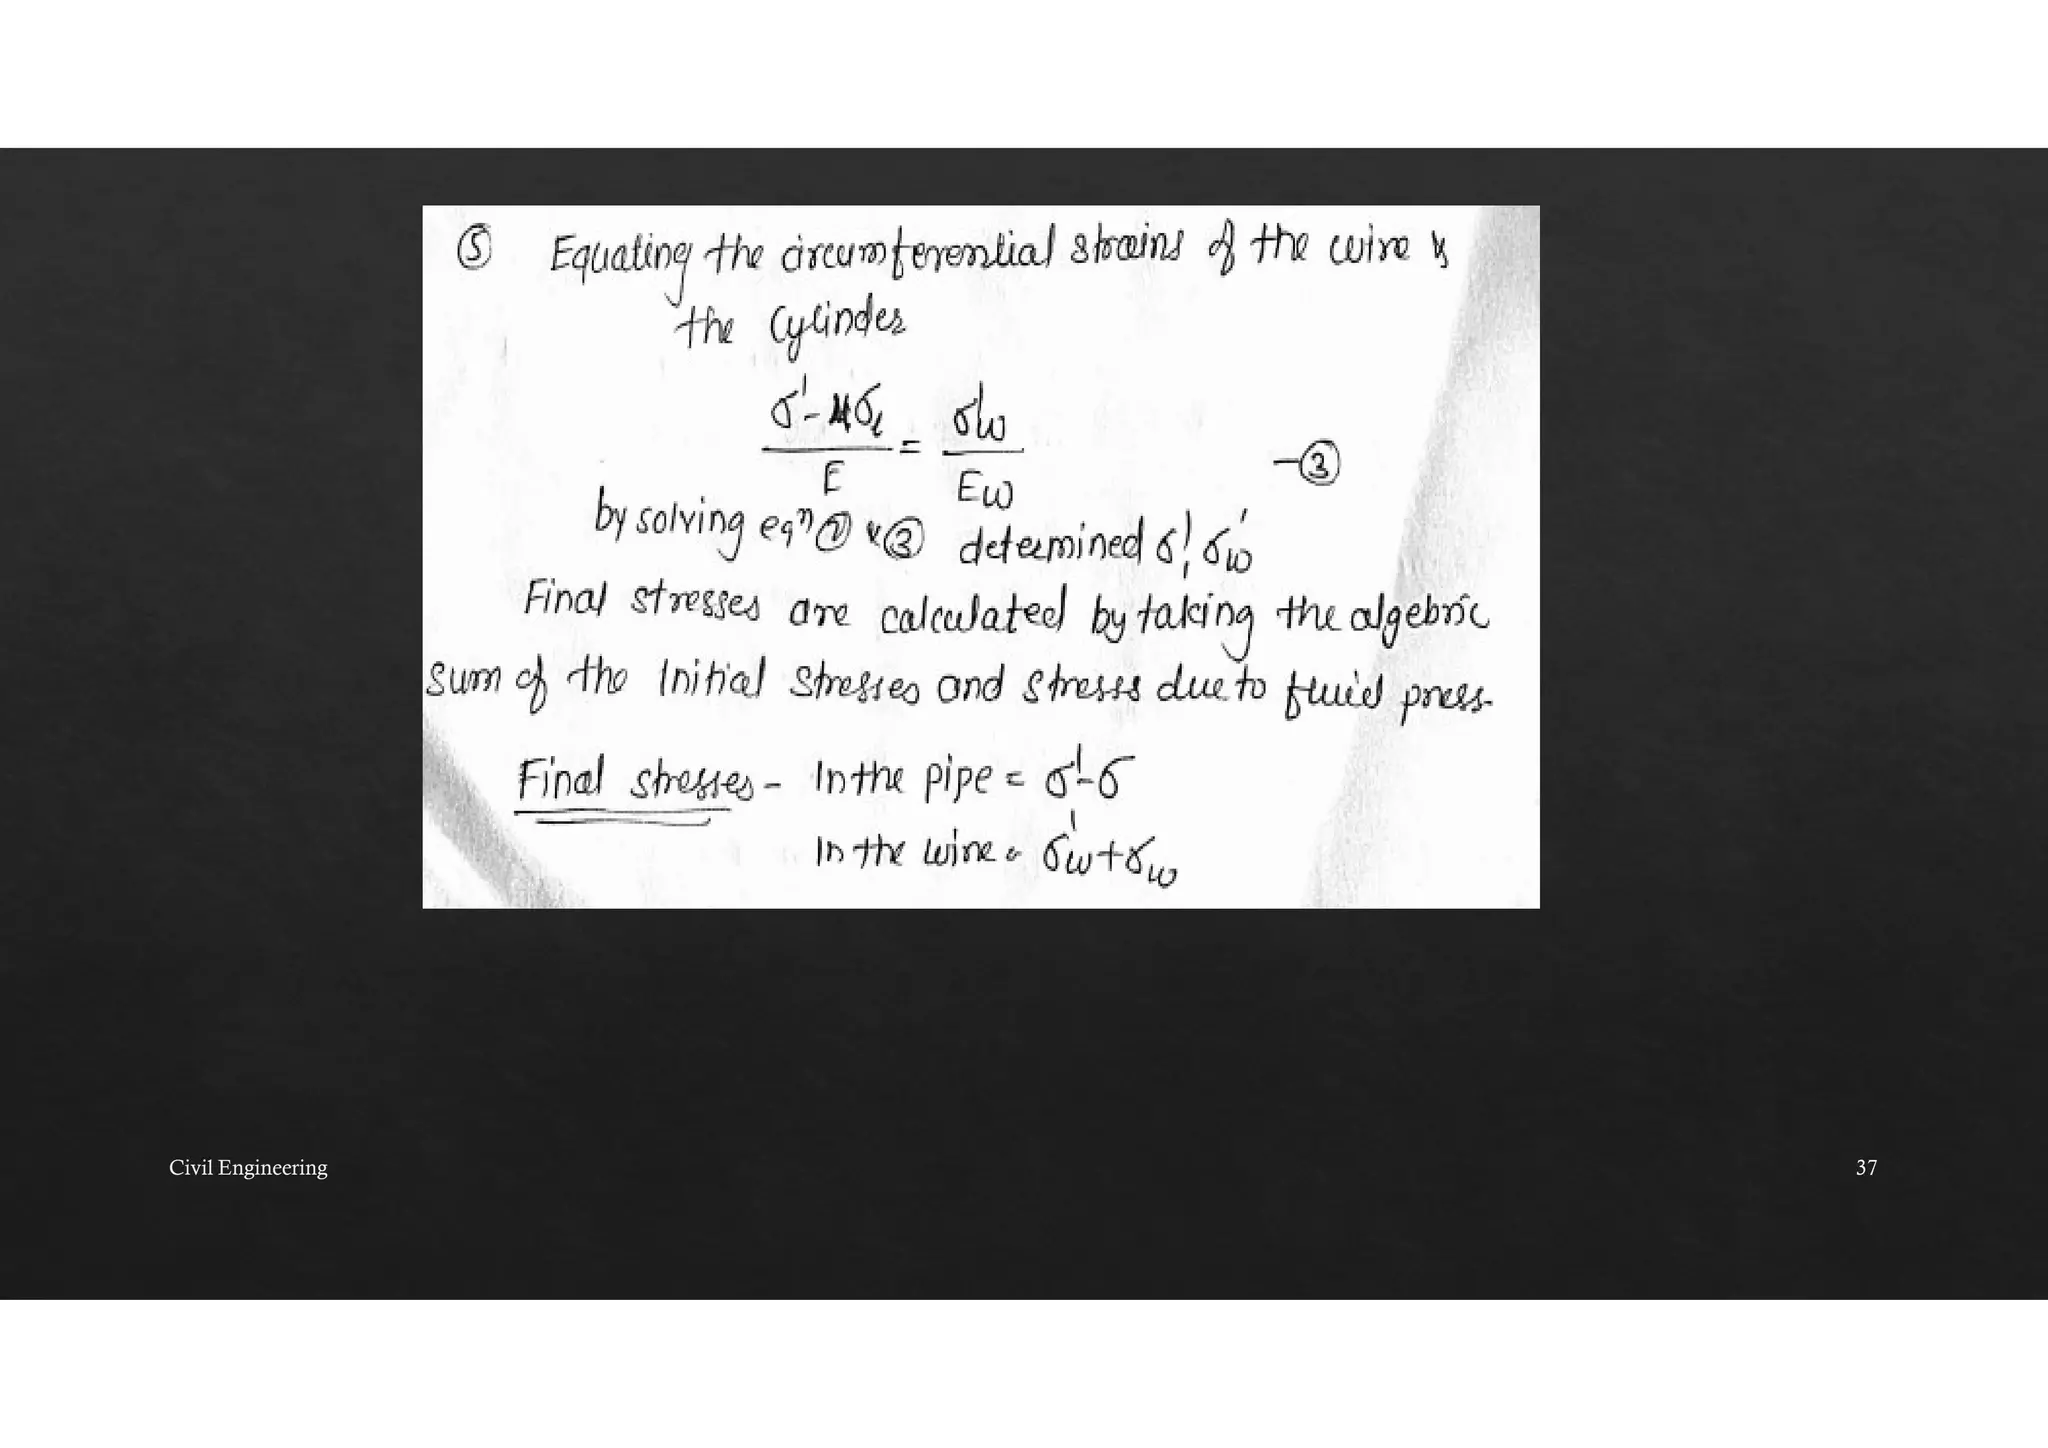 ⑤ Equating the circumferential strains of the wire &
the cylinder
σ' - μσl / E = σ'w / Ew -③
by solving eqⁿ ② & ③ determined σ', σ'w
Final stresses are calculated by taking the algebric
sum of the Initial stresses and stresss due to fluid press.
Final stresses - In the pipe = σ' - σ
In the wire = σ'w + σw
Civil Engineering
37